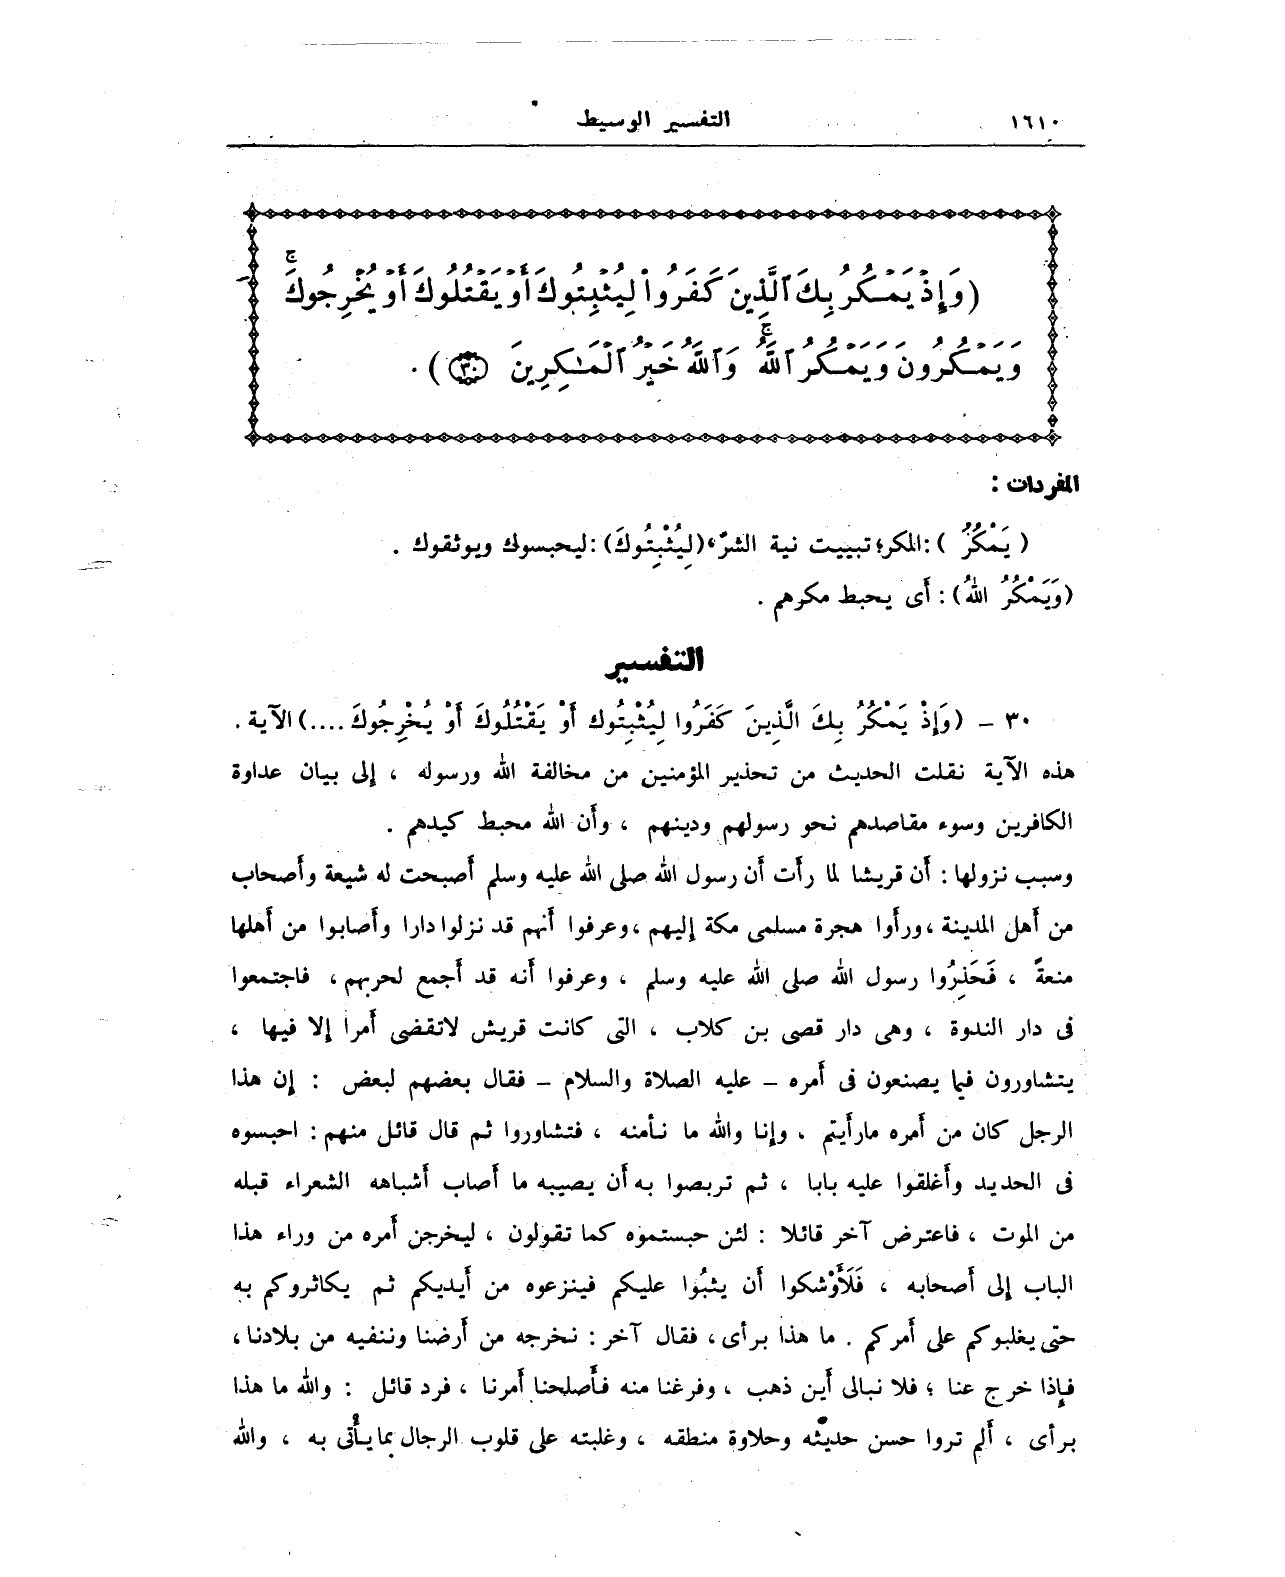 ١٦١٠ التفسير الوسيط
(وَإِذْ يَمْكُرُ بِكَ ٱلَّذِينَ كَفَرُوا۟ لِيُثْبِتُوكَ أَوْ يَقْتُلُوكَ أَوْ يُخْرِجُوكَ ۚ
وَيَمْكُرُونَ وَيَمْكُرُ ٱللَّهُ ۖ وَٱللَّهُ خَيْرُ ٱلْمَـٰكِرِينَ ﴿٣٠﴾) .
المفردات :
( يَمْكُرُ ) : المكر؛ تبييت نية الشرّ ، (لِيُثْبِتُوكَ) : ليحبسوك ويوثقوك .
(وَيَمْكُرُ اللهُ) : أَى يحبط مكرهم .
التفسير
٣٠ – (وَإِذْ يَمْكُرُ بِكَ الَّذِينَ كَفَرُوا لِيُثْبِتُوكَ أَوْ يَقْتُلُوكَ أَوْ يُخْرِجُوكَ ....) الآية .
هذه الآية نقلت الحديث من تحذير المؤمنين من مخالفة الله ورسوله ، إلى بيان عداوة
الكافرين وسوء مقاصدهم نحو رسولهم ودينهم ، وأَن الله محبط كيدهم .
وسبب نزولها : أَن قريشا لما رأَت أَن رسول الله صلى الله عليه وسلم أَصبحت له شيعة وأَصحاب
من أَهل المدينة ، ورأَوا هجرة مسلمى مكة إليهم ، وعرفوا أَنهم قد نزلوا دارا وأَصابوا من أَهلها
منعةً ، فَحَذِرُوا رسول الله صلى الله عليه وسلم ، وعرفوا أَنه قد أَجمع لحربهم ، فاجتمعوا
فى دار الندوة ، وهى دار قصى بن كلاب ، التى كانت قريش لاتقضى أَمرا إلا فيها ،
يتشاورون فيما يصنعون فى أَمره – عليه الصلاة والسلام – فقال بعضهم لبعض : إن هذا
الرجل كان من أَمره مارأَيتم ، وإنا والله ما نأمنه ، فتشاوروا ثم قال قائل منهم : احبسوه
فى الحديد وأَغلقوا عليه بابا ، ثم تربصوا به أَن يصيبه ما أَصاب أَشباهه الشعراء قبله
من الموت ، فاعترض آخر قائلا : لئن حبستموه كما تقولون ، ليخرجن أَمره من وراء هذا
الباب إلى أَصحابه ، فَلَأَوْشكوا أَن يثبُوا عليكم فينزعوه من أَيديكم ثم يكاثروكم به
حتى يغلبوكم على أَمركم . ما هذا برأى ، فقال آخر : نخرجه من أَرضنا وننفيه من بلادنا ،
فإذا خرج عنا ؛ فلا نبالى أَين ذهب ، وفرغنا منه فأَصلحنا أَمرنا ، فرد قائل : والله ما هذا
برأى ، أَلم تروا حسن حديثه وحلاوة منطقه ، وغلبته على قلوب الرجال بما يأْتى به ، والله